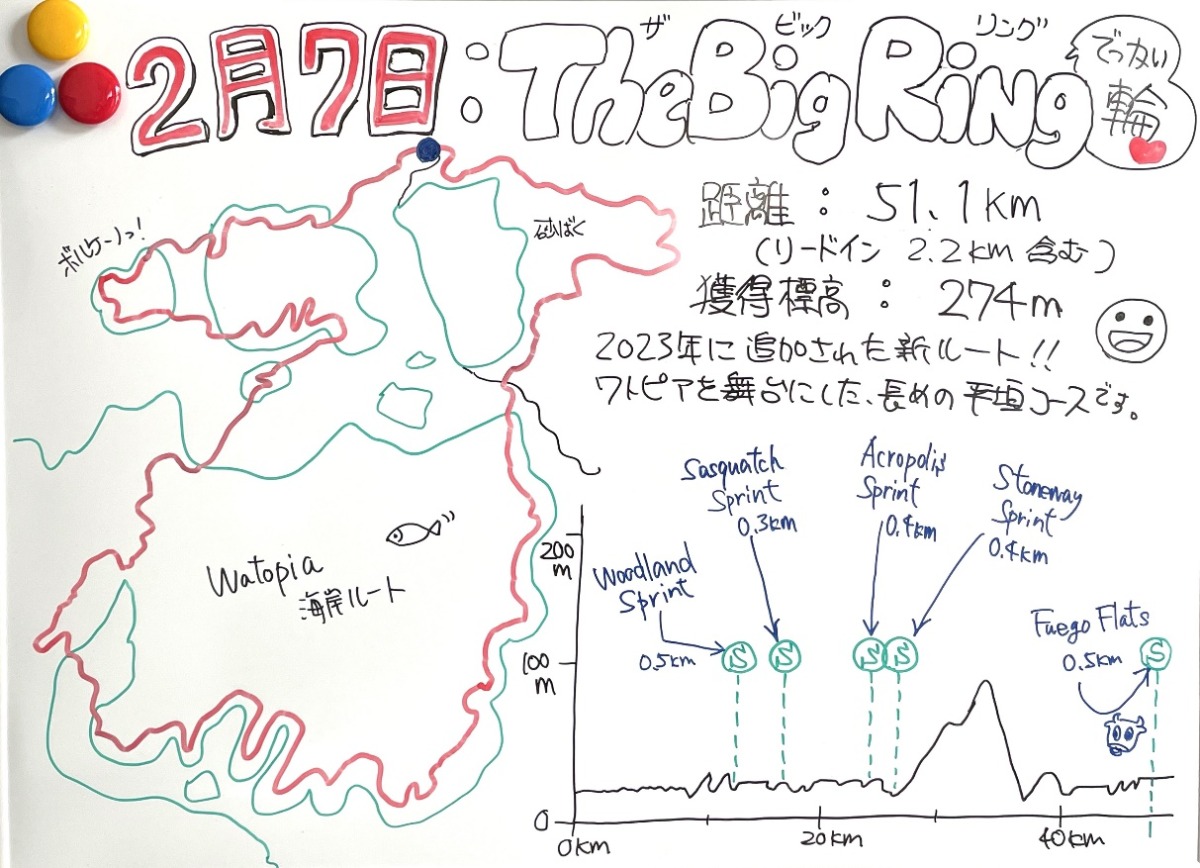 2月7日:The Big Ring
ザ ビック リング
でっかい
輪
距離:51.1km
(リードイン 2.2km 含む)
獲得標高:274m
2023年に追加された新ルート!!
ワトピアを舞台にした、長めの平坦コースです。
ボルケーノっ!
砂ばく
Watopia
海岸ルート
Sasquatch
Sprint
0.3km
Acropolis
Sprint
0.4km
Stoneway
Sprint
0.4km
Woodland
Sprint
0.5km
Fuego Flats
0.5km
S
S
S
S
S
200
m
100
m
0
0km
20km
40km